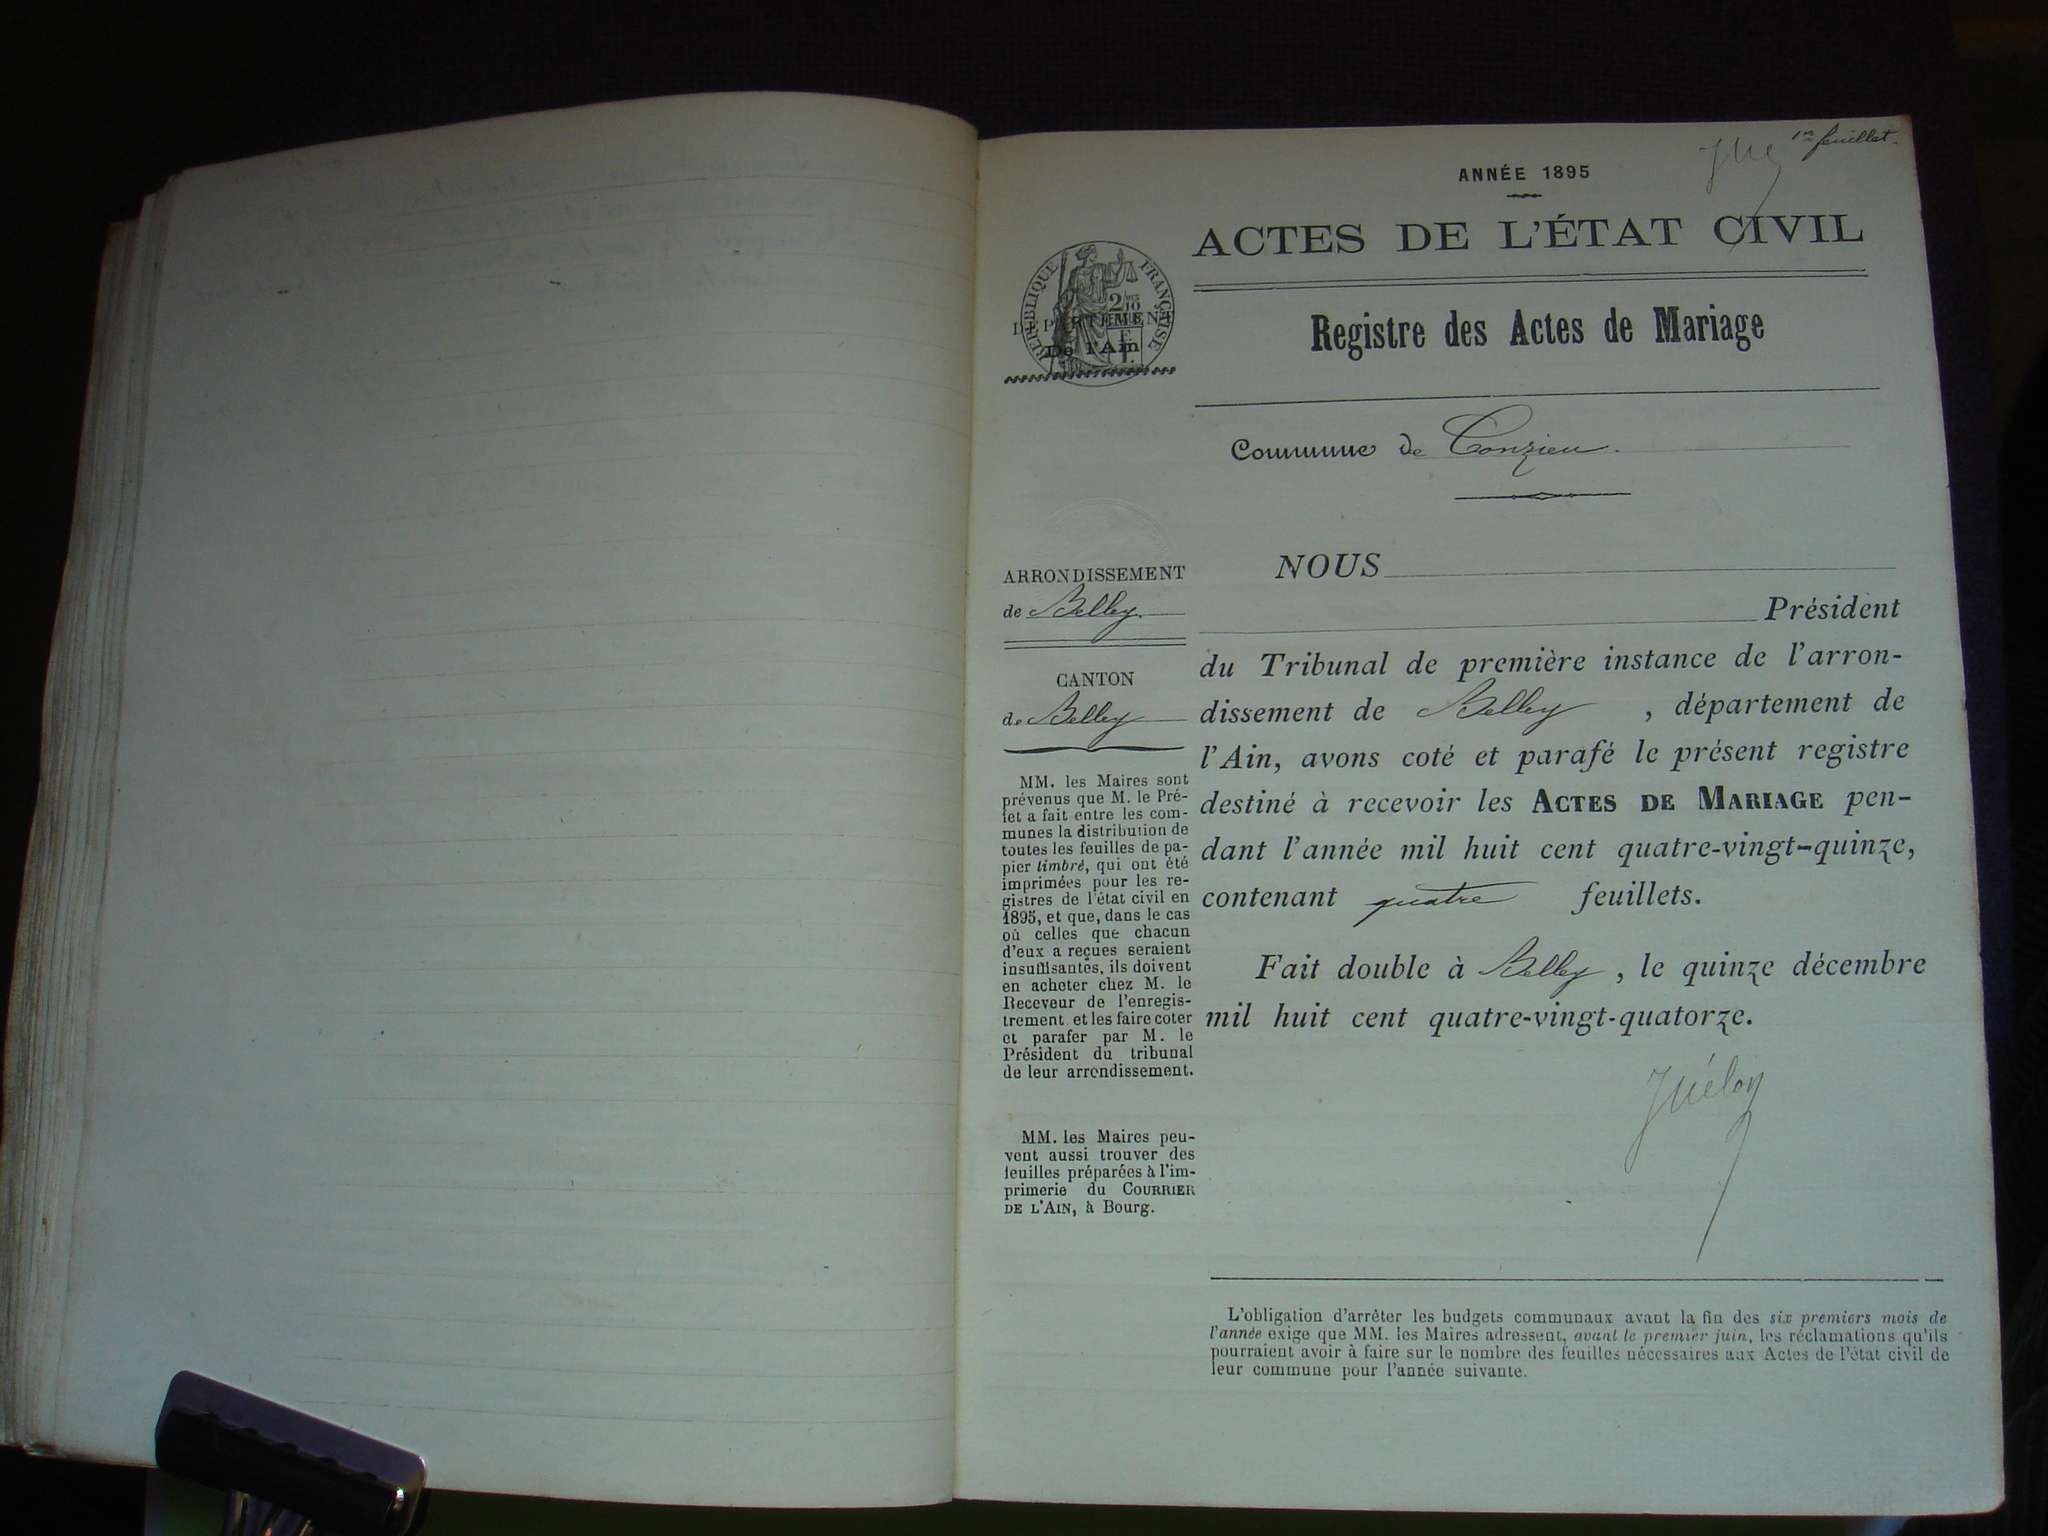 1er feuillet.
ANNÉE 1895
ACTES DE L'ÉTAT CIVIL
RÉPUBLIQUE FRANÇAISE
DÉPARTEMENT
De l'Ain
Registre des Actes de Mariage
Commune de Conzieu.
ARRONDISSEMENT
de Belley.
CANTON
de Belley
MM. les Maires sont
prévenus que M. le Pré-
fet a fait entre les com-
munes la distribution de
toutes les feuilles de pa-
pier timbré, qui ont été
imprimées pour les re-
gistres de l'état civil en
1895, et que, dans le cas
où celles que chacun
d'eux a reçues seraient
insuffisantes, ils doivent
en acheter chez M. le
Receveur de l'enregis-
trement et les faire coter
et parafer par M. le
Président du tribunal
de leur arrondissement.
MM. les Maires peu-
vent aussi trouver des
feuilles préparées à l'im-
primerie du COURRIER
DE L'AIN, à Bourg.
NOUS
Président
du Tribunal de première instance de l'arron-
dissement de Belley, département de
l'Ain, avons coté et parafé le présent registre
destiné à recevoir les ACTES DE MARIAGE pen-
dant l'année mil huit cent quatre-vingt-quinze,
contenant quatre feuillets.
Fait double à Belley, le quinze décembre
mil huit cent quatre-vingt-quatorze.
L'obligation d'arrêter les budgets communaux avant la fin des six premiers mois de
l'année exige que MM. les Maires adressent, avant le premier juin, les réclamations qu'ils
pourraient avoir à faire sur le nombre des feuilles nécessaires aux Actes de l'état civil de
leur commune pour l'année suivante.